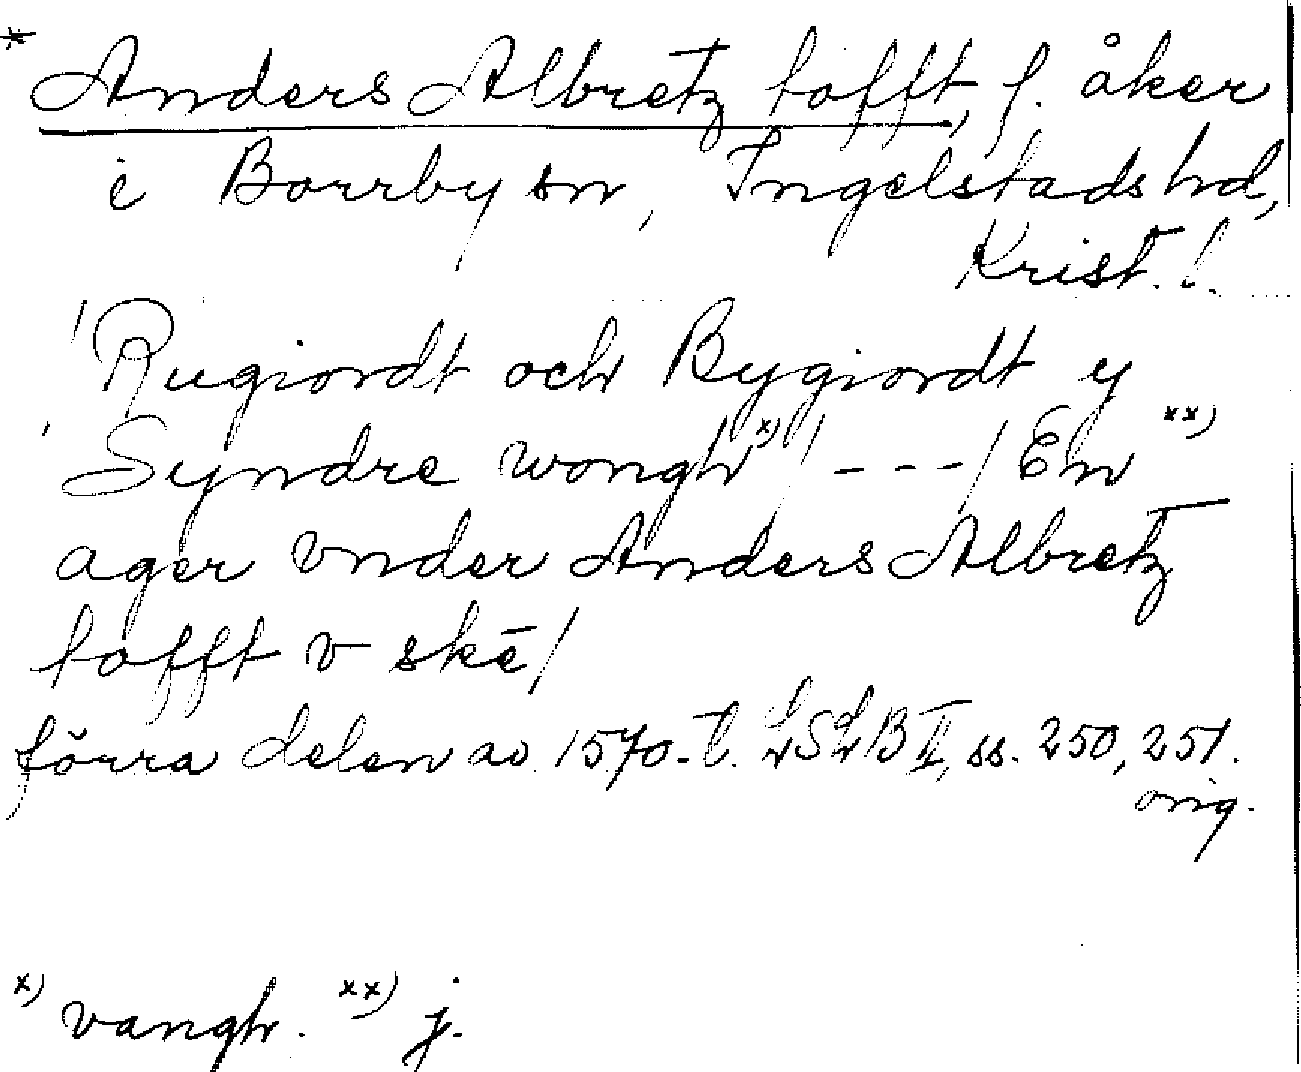 * Anders Albretz tofft, f. åker
i Borrby sn, Ingelstads hd,
Krist. l.
'Rugiordt och Bygiordt y
Syndre wongh x) / - - - / En xx)
ager vnder Anders Albretz
tofft v skē /
förra delen av 1570-t. LSLB II, ss. 250, 251.
orig.
x) vangh. xx) j.